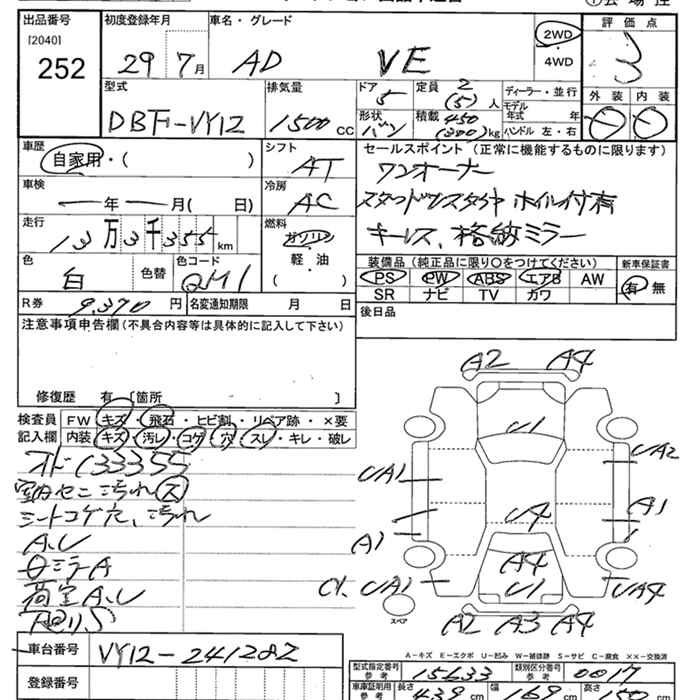 出品番号 初度登録年月 車名・グレード 評価点
[2040]
252 29年7月 AD VE 2WD・4WD 3
型式 排気量 ドア 定員 2 ディーラー・並行 外装 内装
DBF-VY12 1500cc 5 (5)人 モデル年式 年
形状 バン 積載 450 (300)kg ハンドル 左・右
車歴 シフト セールスポイント(正常に機能するものに限ります)
自家用・( ) AT ワンオーナー
車検 冷房
年 月( 日) AC
走行 燃料
13万3千355km ガソリン キーレス、格納ミラー
色 色替 色コード 軽・油 装備品(純正品に限り○をつけてください) 新車保証書
白 QM1 ( ) PS PW ABS エアB AW 有・無
SR ナビ TV カワ
R券 9,370円 名変通知期限 月 日 後日品
注意事項申告欄(不具合内容等は具体的に記入して下さい)
修復歴 有〔箇所 〕
検査員 FW キズ・飛石・ヒビ割・リペア跡・×要
記入欄 内装 キズ・汚レ・コゲ・穴・スレ・キレ・破レ
133355
シートコゲ穴、汚れ
A.U
荷室A.U
A2 A4
U1
UA1 UA2
U4 A1
A1 A4
UA1 U1 UA4
スペア A2 A3 A4
A-キズ E-エクボ U-凹み W-補修跡 S-サビ C-腐食 ××-交換済
車台番号 VY12-241282
型式指定番号 参考 15633 類別区分番号 参考 0017
登録番号
車庫証明用 参考 長さ 439cm 幅 169cm 高さ 150cm